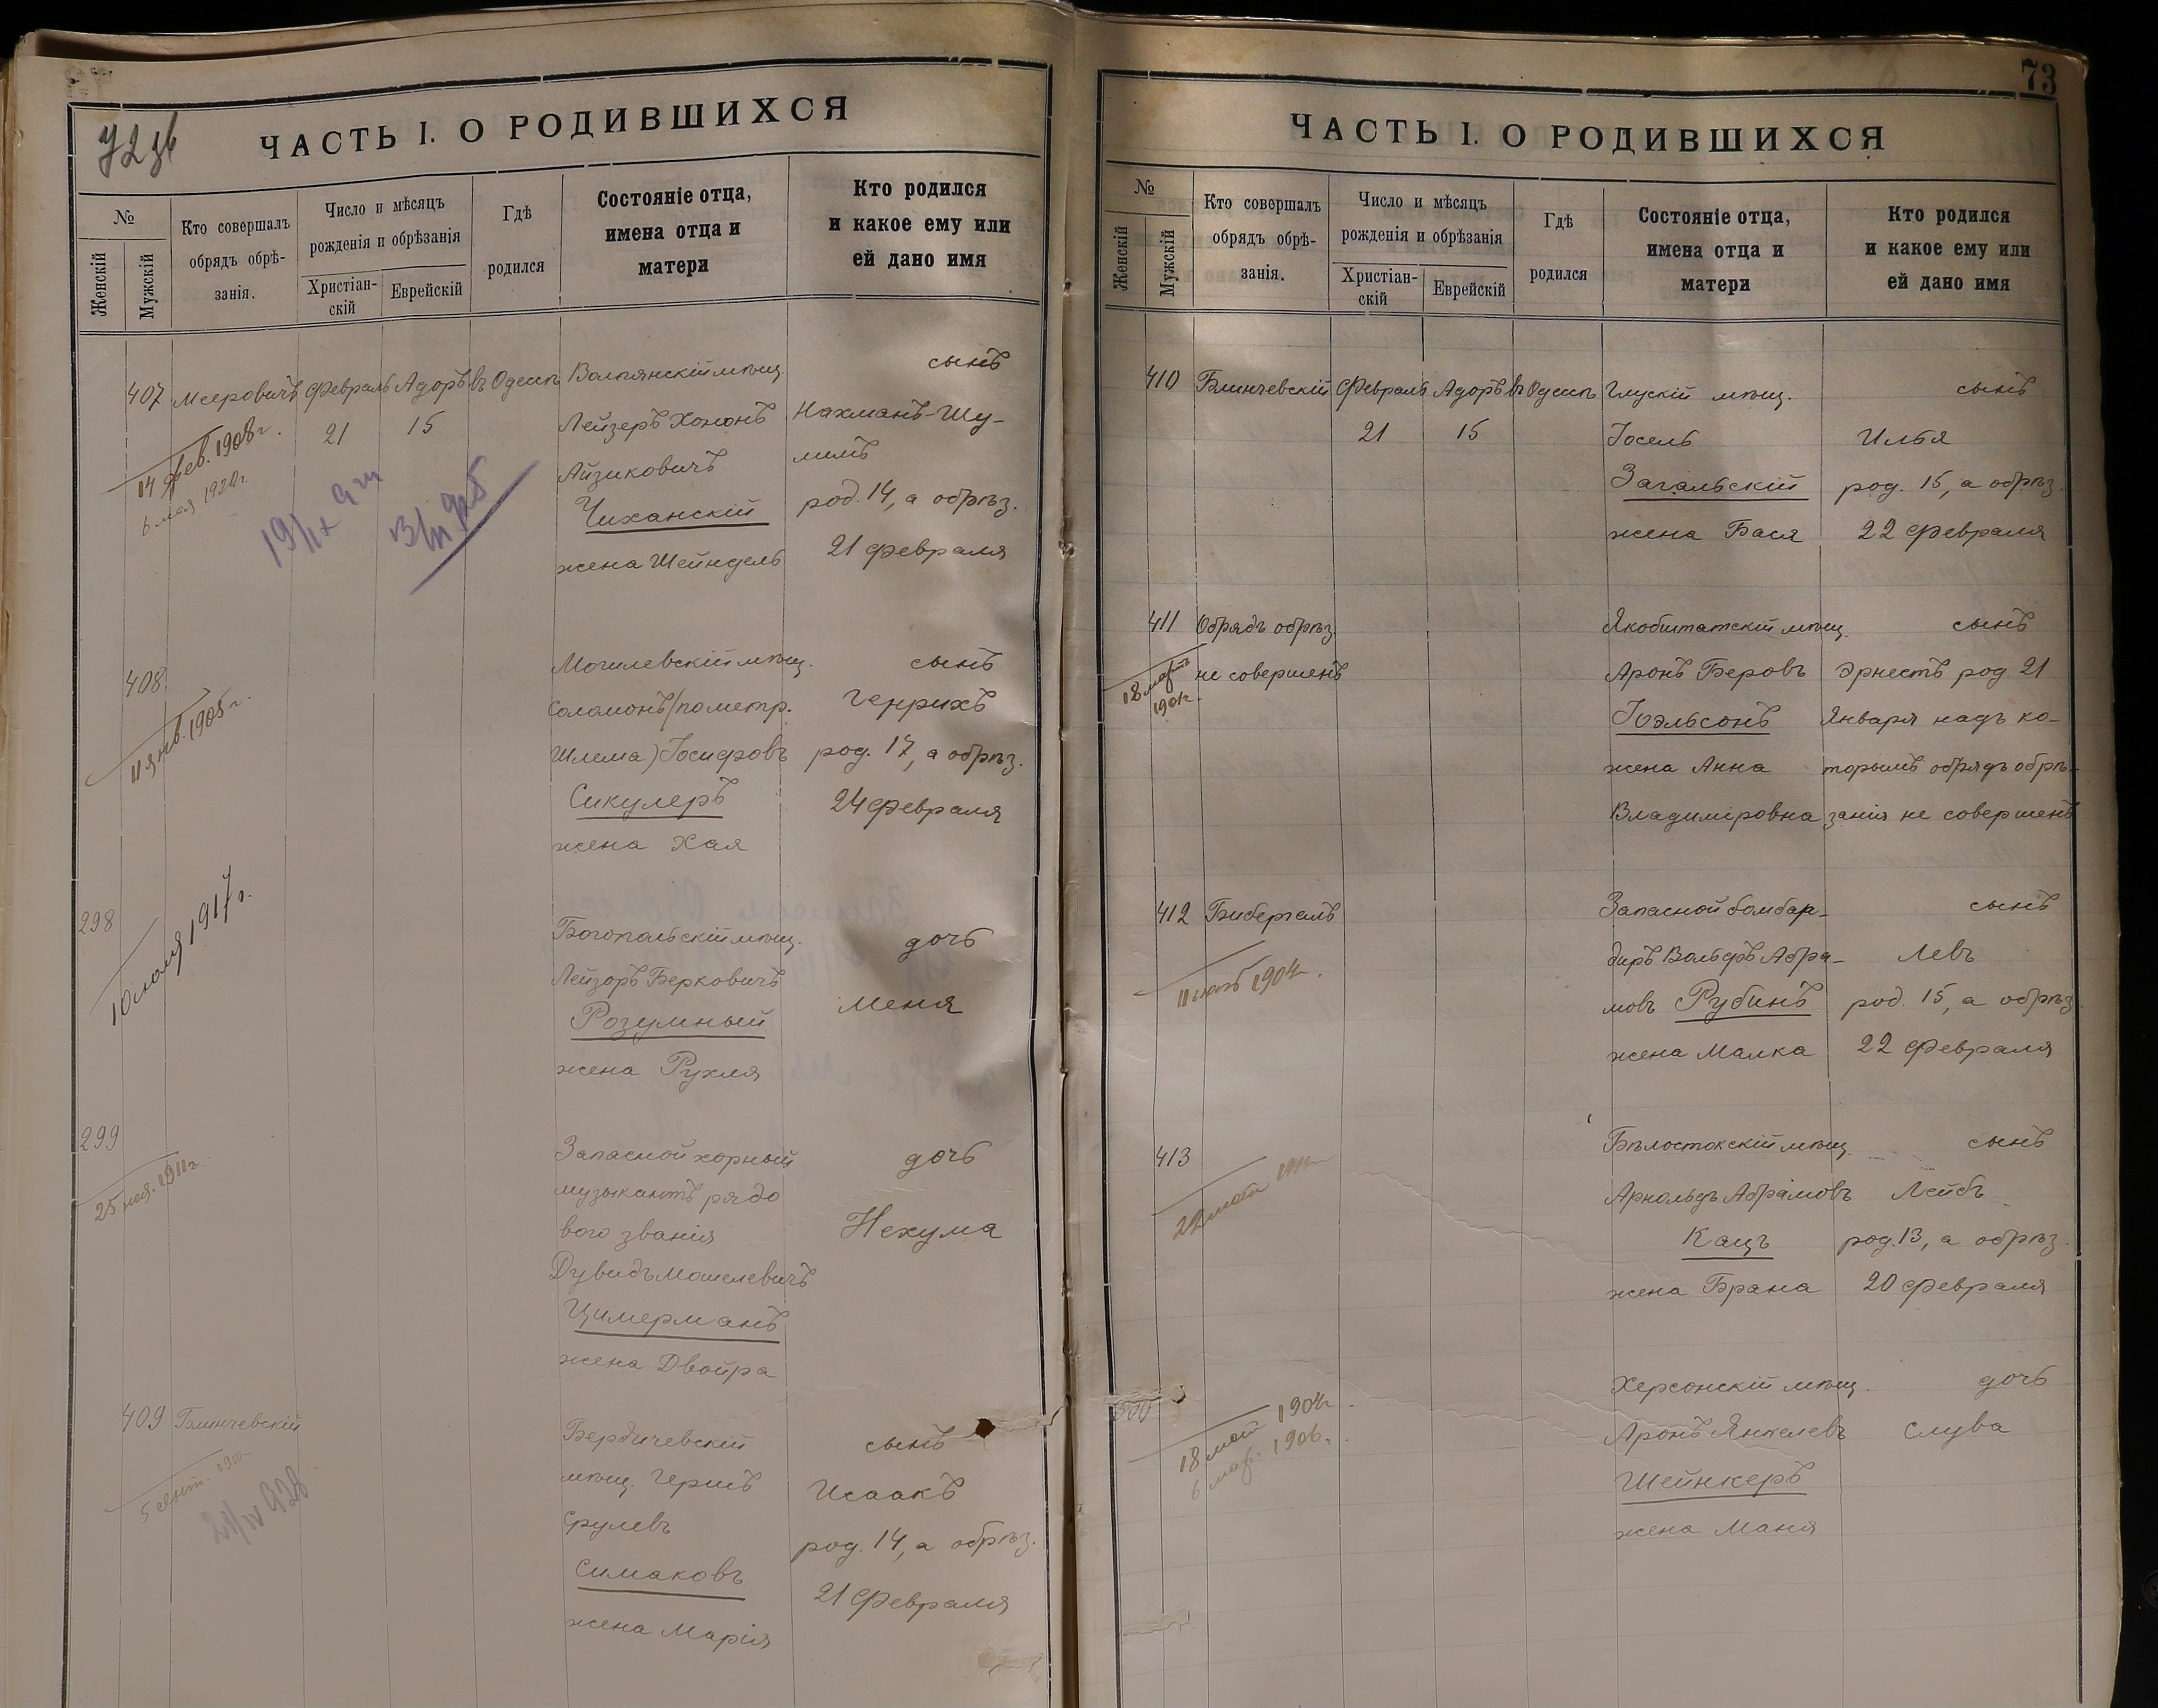 72 зв
ЧАСТЬ I. О РОДИВШИХСЯ
№
Женскій
Мужскій
Кто совершалъ
обрядъ обрѣ-
занія.
Число и мѣсяцъ
рожденія и обрѣзанія
Христіан-
скій
Еврейскій
Гдѣ
родился
Состояніе отца,
имена отца и
матери
Кто родился
и какое ему или
ей дано имя
407
Мееровичъ
Февраль
21
Адоръ
15
въ Одессѣ
14 фев. 1908 г.
6 мая 1920 г.
Волпянскій мѣщ.
Лейзеръ Хононъ
Айзиковичъ
Чиханскій
жена Шейндель
сынъ
Нахманъ-Шу-
лимъ
род. 14, а обрѣз.
21 Февраля
408
11 янв. 1905 г.
Могилевскій мѣщ.
Соломонъ (по метр.
Шлема) Іосифовъ
Сикулеръ
жена Хая
сынъ
Генрихъ
род. 17, а обрѣз.
24 Февраля
298
10 1917 г.
Богопольскій мѣщ.
Лейзоръ Берковичъ
Розумный
жена Рухля
дочь
Меня
299
25 1911 г.
Запасной хорный
музыкантъ рядо
вого званія
Дувидъ Мошелевичъ
Цимерманъ
жена Двойра
дочь
Нехума
409
Блинчевскій
5 сент.
Бердичевскій
мѣщ. Гершъ
Срулевъ
Симаковъ
жена Марія
сынъ
Исаакъ
род. 14, а обрѣз.
21 Февраля
73
ЧАСТЬ I. О РОДИВШИХСЯ
№
Женскій
Мужскій
Кто совершалъ
обрядъ обрѣ-
занія.
Число и мѣсяцъ
рожденія и обрѣзанія
Христіан-
скій
Еврейскій
Гдѣ
родился
Состояніе отца,
имена отца и
матери
Кто родился
и какое ему или
ей дано имя
410
Блинчевскій
Февраль
21
Адоръ
15
въ Одессѣ
Глускій мѣщ.
Іосель
Загальскій
жена Бася
сынъ
Илья
род. 15, а обрѣз.
22 Февраля
411
Обрядъ обрѣз.
не совершенъ
18 март
Якобштатскій мѣщ.
Аронъ Беровъ
Іоэльсонъ
жена Анна
Владиміровна
сынъ
Эрнестъ род. 21
Января надъ ко-
торымъ обрядъ обрѣ-
занія не совершенъ
412
Бибергалъ
1904 г.
Запасной бомбар-
диръ Вольфъ Абра-
мовъ Рубинъ
жена Малка
сынъ
Левъ
род. 15, а обрѣз.
22 Февраля
413
Бѣлостокскій мѣщ.
Арнольдъ Абрамовъ
Кацъ
жена Брана
сынъ
Лейбъ
род. 13, а обрѣз.
20 Февраля
300
18 1904 г.
6 мар. 1906 г.
Херсонскій мѣщ.
Аронъ Янкелевъ
Шейнкеръ
жена Маня
дочь
Слува